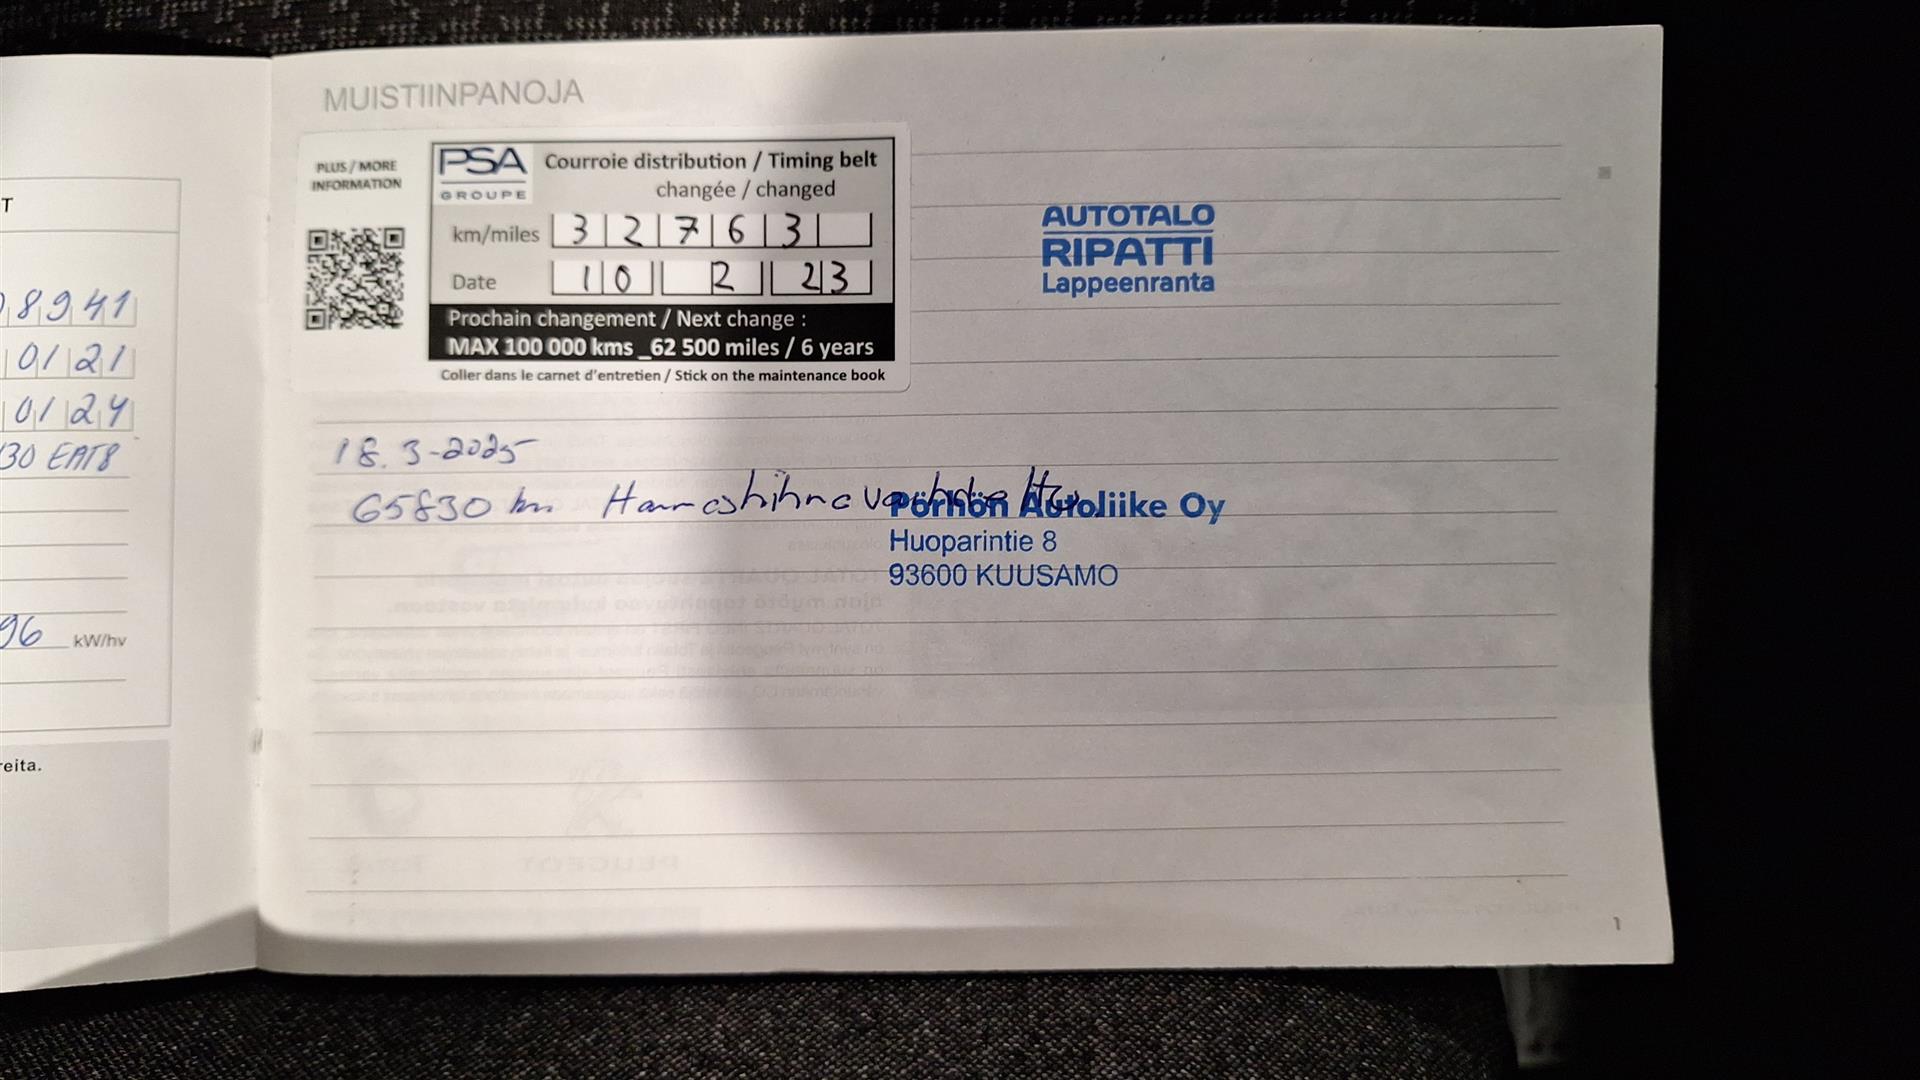 T
8941
0121
0124
130 EAT8
96 kW/hv
reita.
MUISTIINPANOJA
PLUS / MORE
INFORMATION
PSA
GROUPE
Courroie distribution / Timing belt
changée / changed
km/miles 3 2 7 6 3
Date 10 2 23
Prochain changement / Next change :
MAX 100 000 kms _62 500 miles / 6 years
Coller dans le carnet d'entretien / Stick on the maintenance book
AUTOTALO
RIPATTI
Lappeenranta
18.3-2025
65830 km Hammashihna vaihdettu
Pörhön Autoliike Oy
Huoparintie 8
93600 KUUSAMO
1